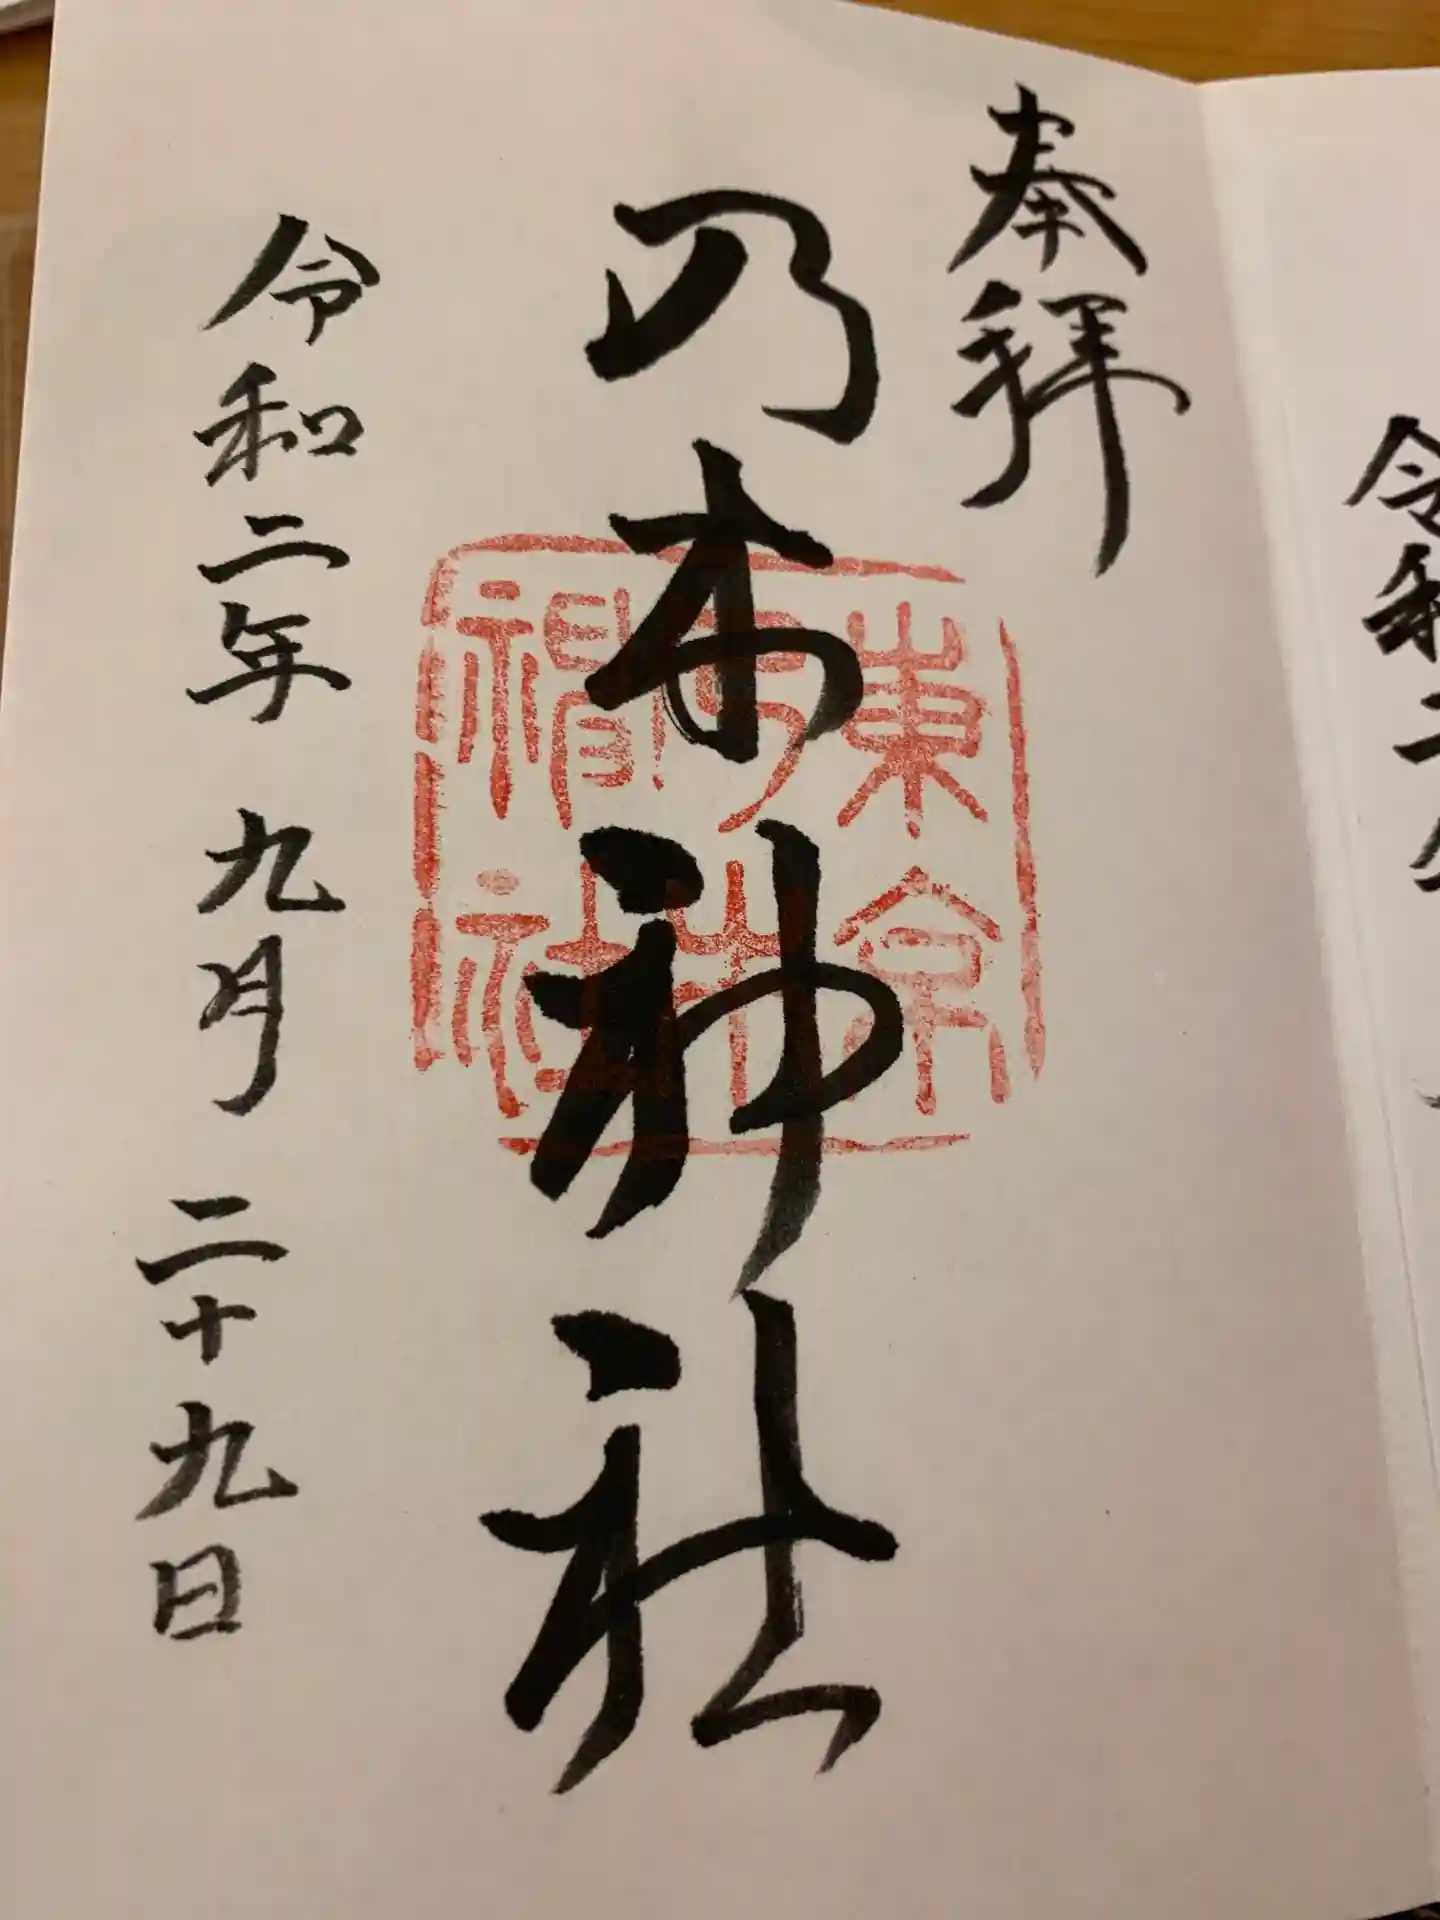 奉拝
乃木神社
東京乃木神社
令和二年 九月 二十九日
令和二年